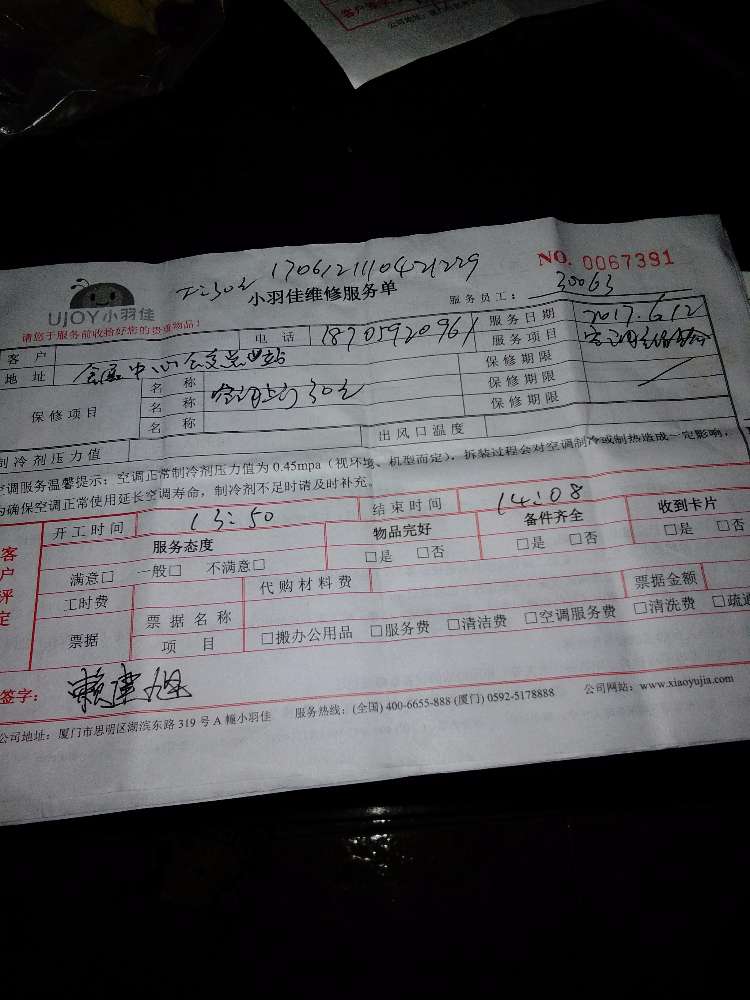 1706121110421229
NO. 0067391
UJOY小羽佳
小羽佳维修服务单
服务员工: 30063
请您于服务前收拾好您的贵重物品!
客 户 电 话 服务日期 2017.6.12
地 址 服务项目
保修项目 名 称 保修期限
名 称 保修期限
名 称 保修期限
制冷剂压力值 出风口温度
空调服务温馨提示:空调正常制冷剂压力值为 0.45mpa(视环境、机型而定),拆装过程会对空调制冷或制热造成一定影响,
为确保空调正常使用延长空调寿命,制冷剂不足时请及时补充。
客户评定
开工时间 13:50 结束时间 14:08
服务态度 物品完好 备件齐全 收到卡片
满意□ 一般□ 不满意□ □是 □否 □是 □否 □是 □否
工时费 代购材料费
票据 票据名称 票据金额
项 目 □搬办公用品 □服务费 □清洁费 □空调服务费 □清洗费 □疏通
签字:
公司地址:厦门市思明区湖滨东路 319 号 A 幢小羽佳 服务热线:(全国) 400-6655-888 (厦门) 0592-5178888 公司网站:www.xiaoyujia.com